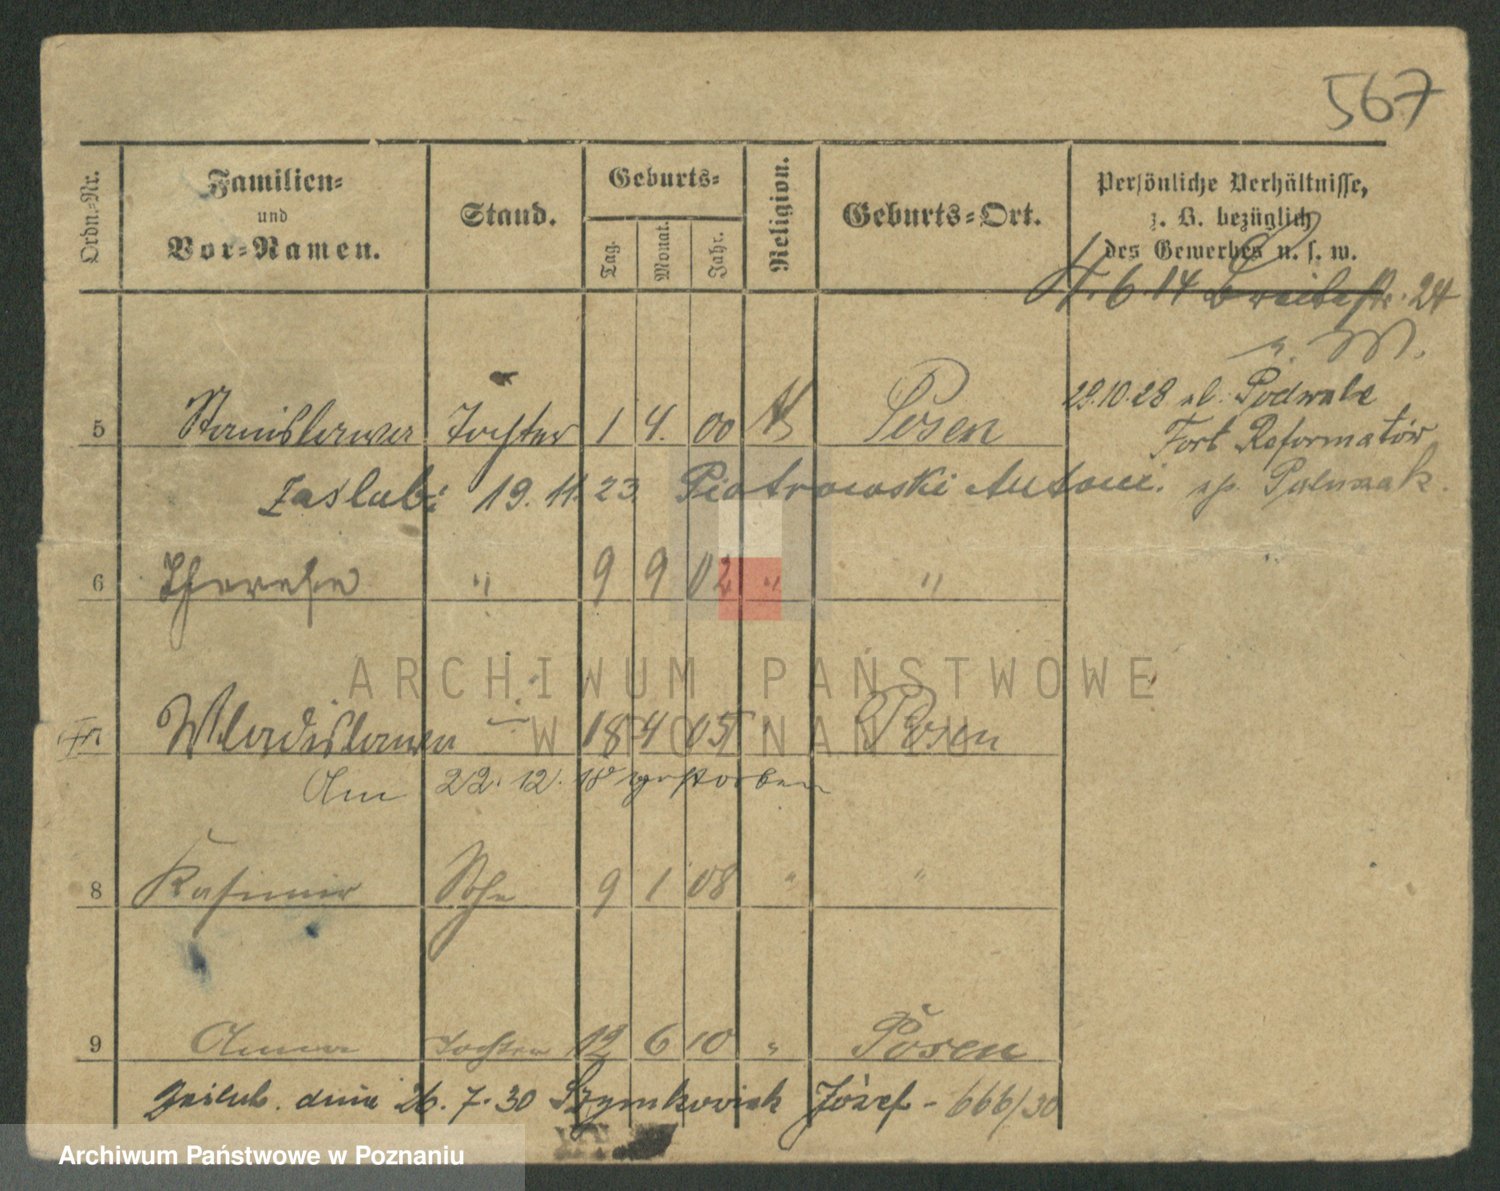 567
Ordn.-Nr.
Familien-
und
Vor-Namen.
Stand.
Geburts-
Tag.
Monat.
Jahr.
Religion.
Geburts-Ort.
Persönliche Verhältnisse,
z. B. bezüglich
des Gewerbes u. s. w.
6. 14 Breitestr. 24
29.10.28 ul. Podwale
5 Stanislawa Tochter 1 4. 00 K Posen
Fort Reformatów
zaslubi 19.11.23 Piotrowski Antoni.
6 Therese " 9 9 02 " "
ARCHIWUM PAŃSTWOWE
W POZNANIU
7 Wladislawa 18 4 05 Posen
Am 22. 12. 18 gestorben
8 Kasimir Sohn 9 1 08 " "
9 Anna Tochter 12 6 10 " Posen
zaślub. dnia 26. 7. 30 Szymkowiak Józef - 666/30
Archiwum Państwowe w Poznaniu